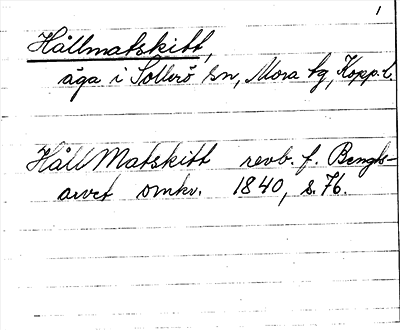 1
Hållmatskitt,
äga i Sollerö sn, Mora tg, Kopp. l.
Håll Matskitt revb. f. Bengts-
arvet omkr. 1840, s. 76.